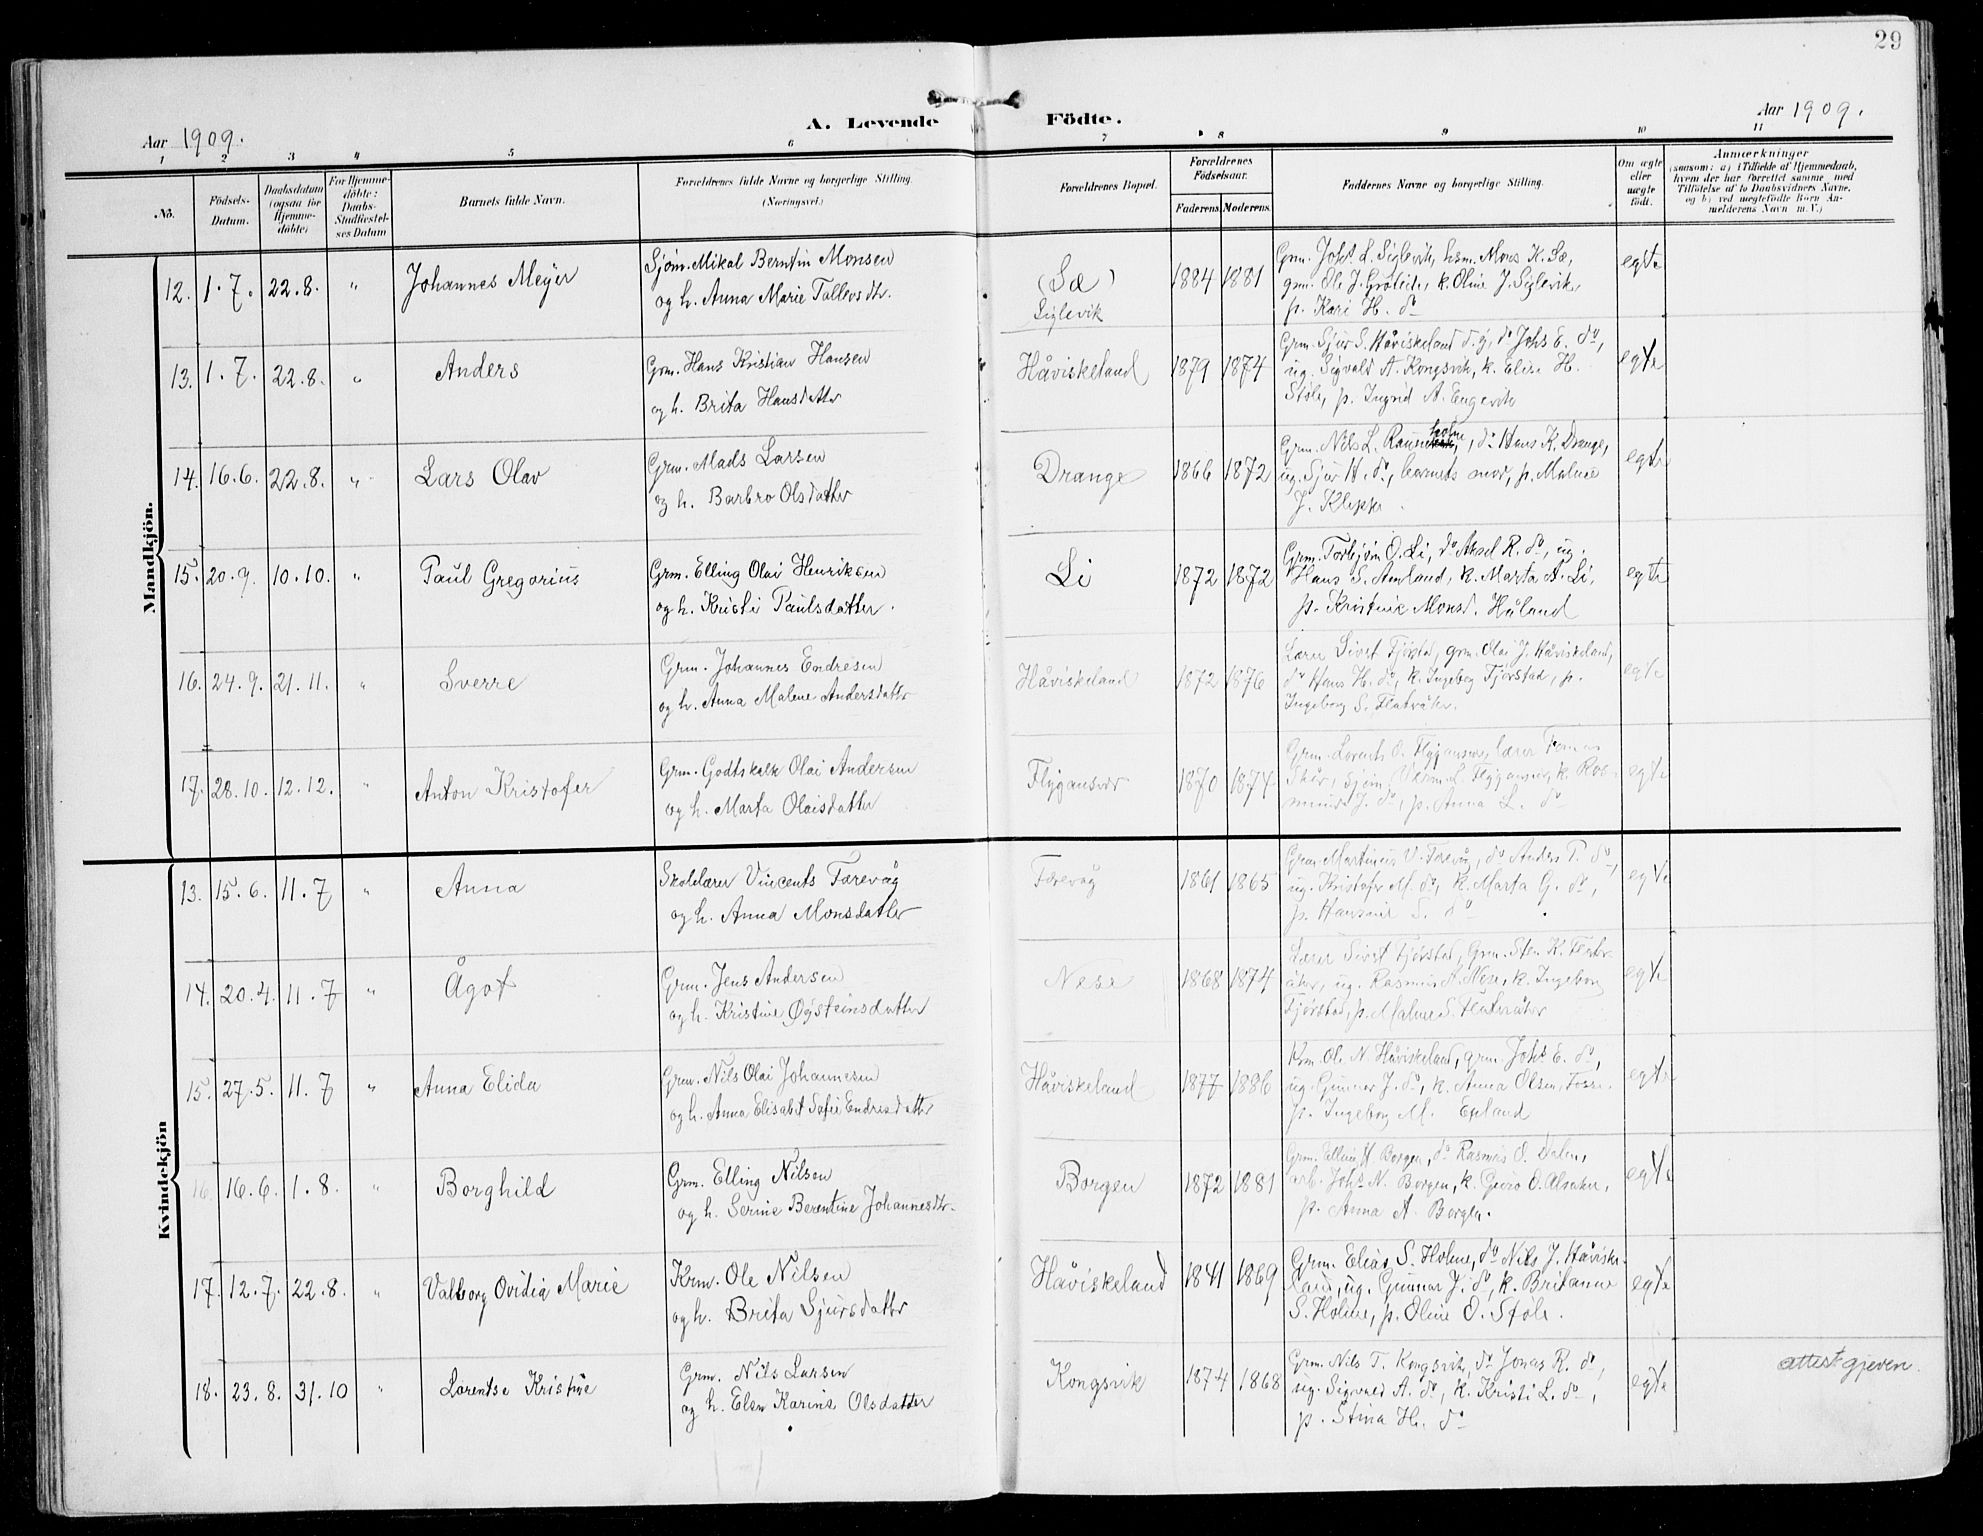 29
Aar 1909.
A. Levende Födte.
Aar 1909.
1 2 3 4 5 6 7 8 9 10 11
No.
Födsels-
Datum.
Daabsdatum
(ogsaa for
Hjemme-
döbte)
For Hjemme-
döbte:
Daabs-
Stadfæstel-
ses Datum
Barnets fulde Navn.
Forældrenes fulde Navne og borgerlige Stilling.
(Næringsvei.)
Forældrenes Bopæl.
Forældrenes
Födselsaar.
Faderens. Moderens.
Faddernes Navne og borgerlige Stilling.
Om ægte
eller
uægte
födt.
Anmærkninger
(saasom: a) i Tilfælde af Hjemmedaab,
hvem der har forrettet samme med
Tilföielse af to Daabsvidners Navne,
og b) ved uægtefödte Börn An-
melderens Navn m. V.)
Mandkjön.
12. 1.7. 22.8. " Johannes Meyer
Sjøm. Mikal Berntin Monsen
og h. Anna Marie Tollevsdtr.
(Sæ)
Siglevik
1884 1881
Grm. Johs. L. Siglevik, hsm. Mons K. Sæ,
grm. Ole J. Grøteide, k. Oline J. Siglevik,
p. Kari H. do
egte
13. 1.7. 22.8. " Anders
Grm. Hans Kristian Hansen
og h. Brita Hansdatter
Håviskeland 1879 1874
Grm. Sjur S. Håviskeland d.y., do Johs E. do,
ug. Sigvald A. Kongsvik, k. Elise H.
Støle, p. Ingrid A. Engevik
egte
14. 16.6. 22.8. " Lars Olav
Grm. Mads Larsen
og h. Barbro Olsdatter
Drange 1866 1872
Grm. Nils L. holme, do Hans K. Drange,
ug. Sjur H. do, barnets mor, p. Malene
J. Kleppe.
egte
15. 20.9. 10.10. " Paul Gregorius
Grm. Elling Olai Henriksen
og h. Kristi Paulsdatter.
Li 1872 1872
Grm. Torbjørn O. Li, do Aksel R. do, ug.
Hans S. Amland, k. Marta A. Li,
p. Kristine Monsd. Håland
egte
16. 24.9. 21.11. " Sverre
Grm. Johannes Endresen
og h. Anna Malene Andersdatter
Håviskeland 1872 1876
Lærer Sivert Fjørstad, grm. Olai J. Håviskeland,
do Hans H. do, k. Ingeborg Fjørstad, p.
Ingeborg S. Flatråker.
egte
17. 28.10. 12.12. " Anton Kristofer
Grm. Godtskalk Olai Andersen
og h. Marta Olaisdatter
Flygansvær 1870 1874
Grm. Lorents O. Flygansvær, lærer Tomas
sjøm. L. Flygansvær, k. Ras-
mine J. do, p. Anna L. do
egte
Kvindekjön
13. 15.6. 11.7 " Anna
Skolelærer Vincents Færevåg
og h. Anna Monsdatter
Færevåg 1861 1865
Grm. Martinius V. Færevåg, do Anders P. do,
ug. Kristofer M. do, k. Marta G. do,
p. Hansine S. do
egte
14. 20.4. 11.7 " Ågot
Grm. Jens Andersen
og h. Kristine Øysteinsdatter
Nese 1868 1874
Lærer Sivert Fjørstad, Grm. Sten K. Flatr-
åker, ug. Rasmus A. Nese, k. Ingeborg
Fjørstad, p. Malene S. Flatråker
egte
15. 27.5. 11.7 " Anna Elida
Grm. Nils Olai Johannesen
og h. Anna Elisabet Sofie Endresdatter
Håviskeland 1877 1886
Krm. Ole N. Håviskeland, grm. Johs E. do,
ug. Gunnar J. do, k. Anna Olsen, Fosse.
p. Ingeborg M. Epland
egte
16. 16.6. 1.8. " Borghild
Grm. Elling Nilsen
og h. Serine Berentine Johannesdtr.
Borgen 1872 1881
Grm. Elling H. Borgen, do Rasmus O. Dalen,
arb. Johs N. Borgen, k. Guro O. Alsaker,
p. Anna A. Borgen.
egte
17. 12.7. 22.8. " Valborg Ovidia Marie
Krm. Ole Nilsen
og h. Brita Sjursdatter
Håviskeland 1841 1869
Grm. Elias S. Holme, do Nils J. Håviske-
land, ug. Gunnar J. do, k. Britanne
S. Holme, p. Oline O. Støle.
egte
18. 23.8. 31.10 " Lorentse Kristine
Grm. Nils Larsen
og h. Elen Karine Olsdatter
Kongsvik 1874 1868
Grm. Nils T. Kongsvik, do Jonas R. do,
ug. Sigvald A. do, k. Kristi L. do,
p. Stina H. do
egte
attest gjeven.